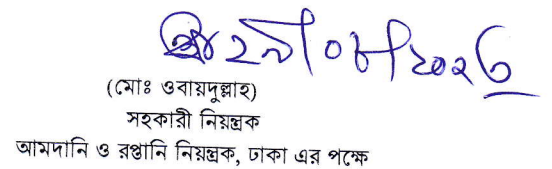 (মোঃ ওবায়দুল্লাহ)
সহকারী নিয়ন্ত্রক
আমদানি ও রপ্তানি নিয়ন্ত্রক, ঢাকা এর পক্ষে